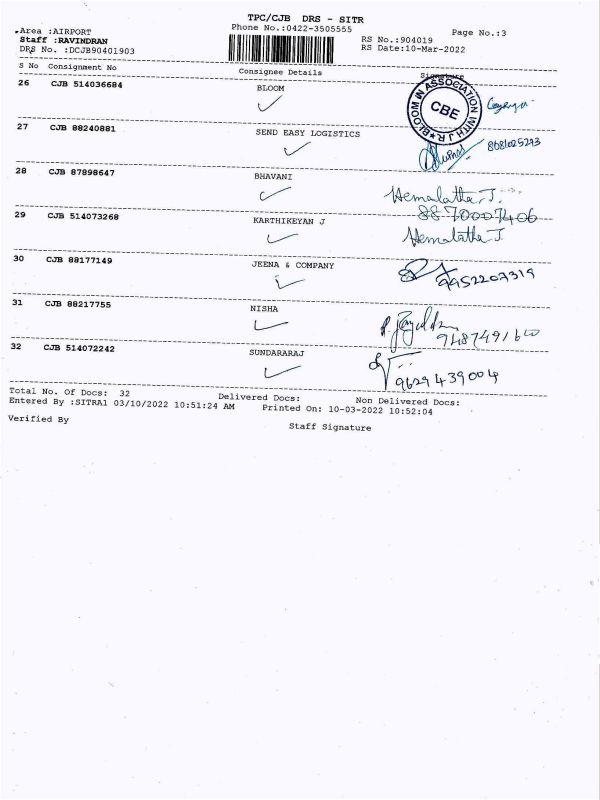 TPC/CJB DRS - SITR
Phone No.:0422-3505555
Page No.:3
Area :AIRPORT
Staff :RAVINDRAN
DRS No. :DCJB90401903
RS No.:904019
RS Date:10-Mar-2022
S No Consignment No Consignee Details Signature
26 CJB 514036684 BLOOM
BLOOM IN ASSOCIATION WITH J.R.
CBE
27 CJB 88240881 SEND EASY LOGISTICS
28 CJB 87898647 BHAVANI Hemalatha.J.
8870007406
29 CJB 514073268 KARTHIKEYAN J Hemalatha J
30 CJB 88177149 JEENA & COMPANY 9952207319
31 CJB 88217755 NISHA
32 CJB 514072242 SUNDARARAJ
9629439004
Total No. Of Docs: 32 Delivered Docs: Non Delivered Docs:
Entered By :SITRA1 03/10/2022 10:51:24 AM Printed On: 10-03-2022 10:52:04
Verified By Staff Signature